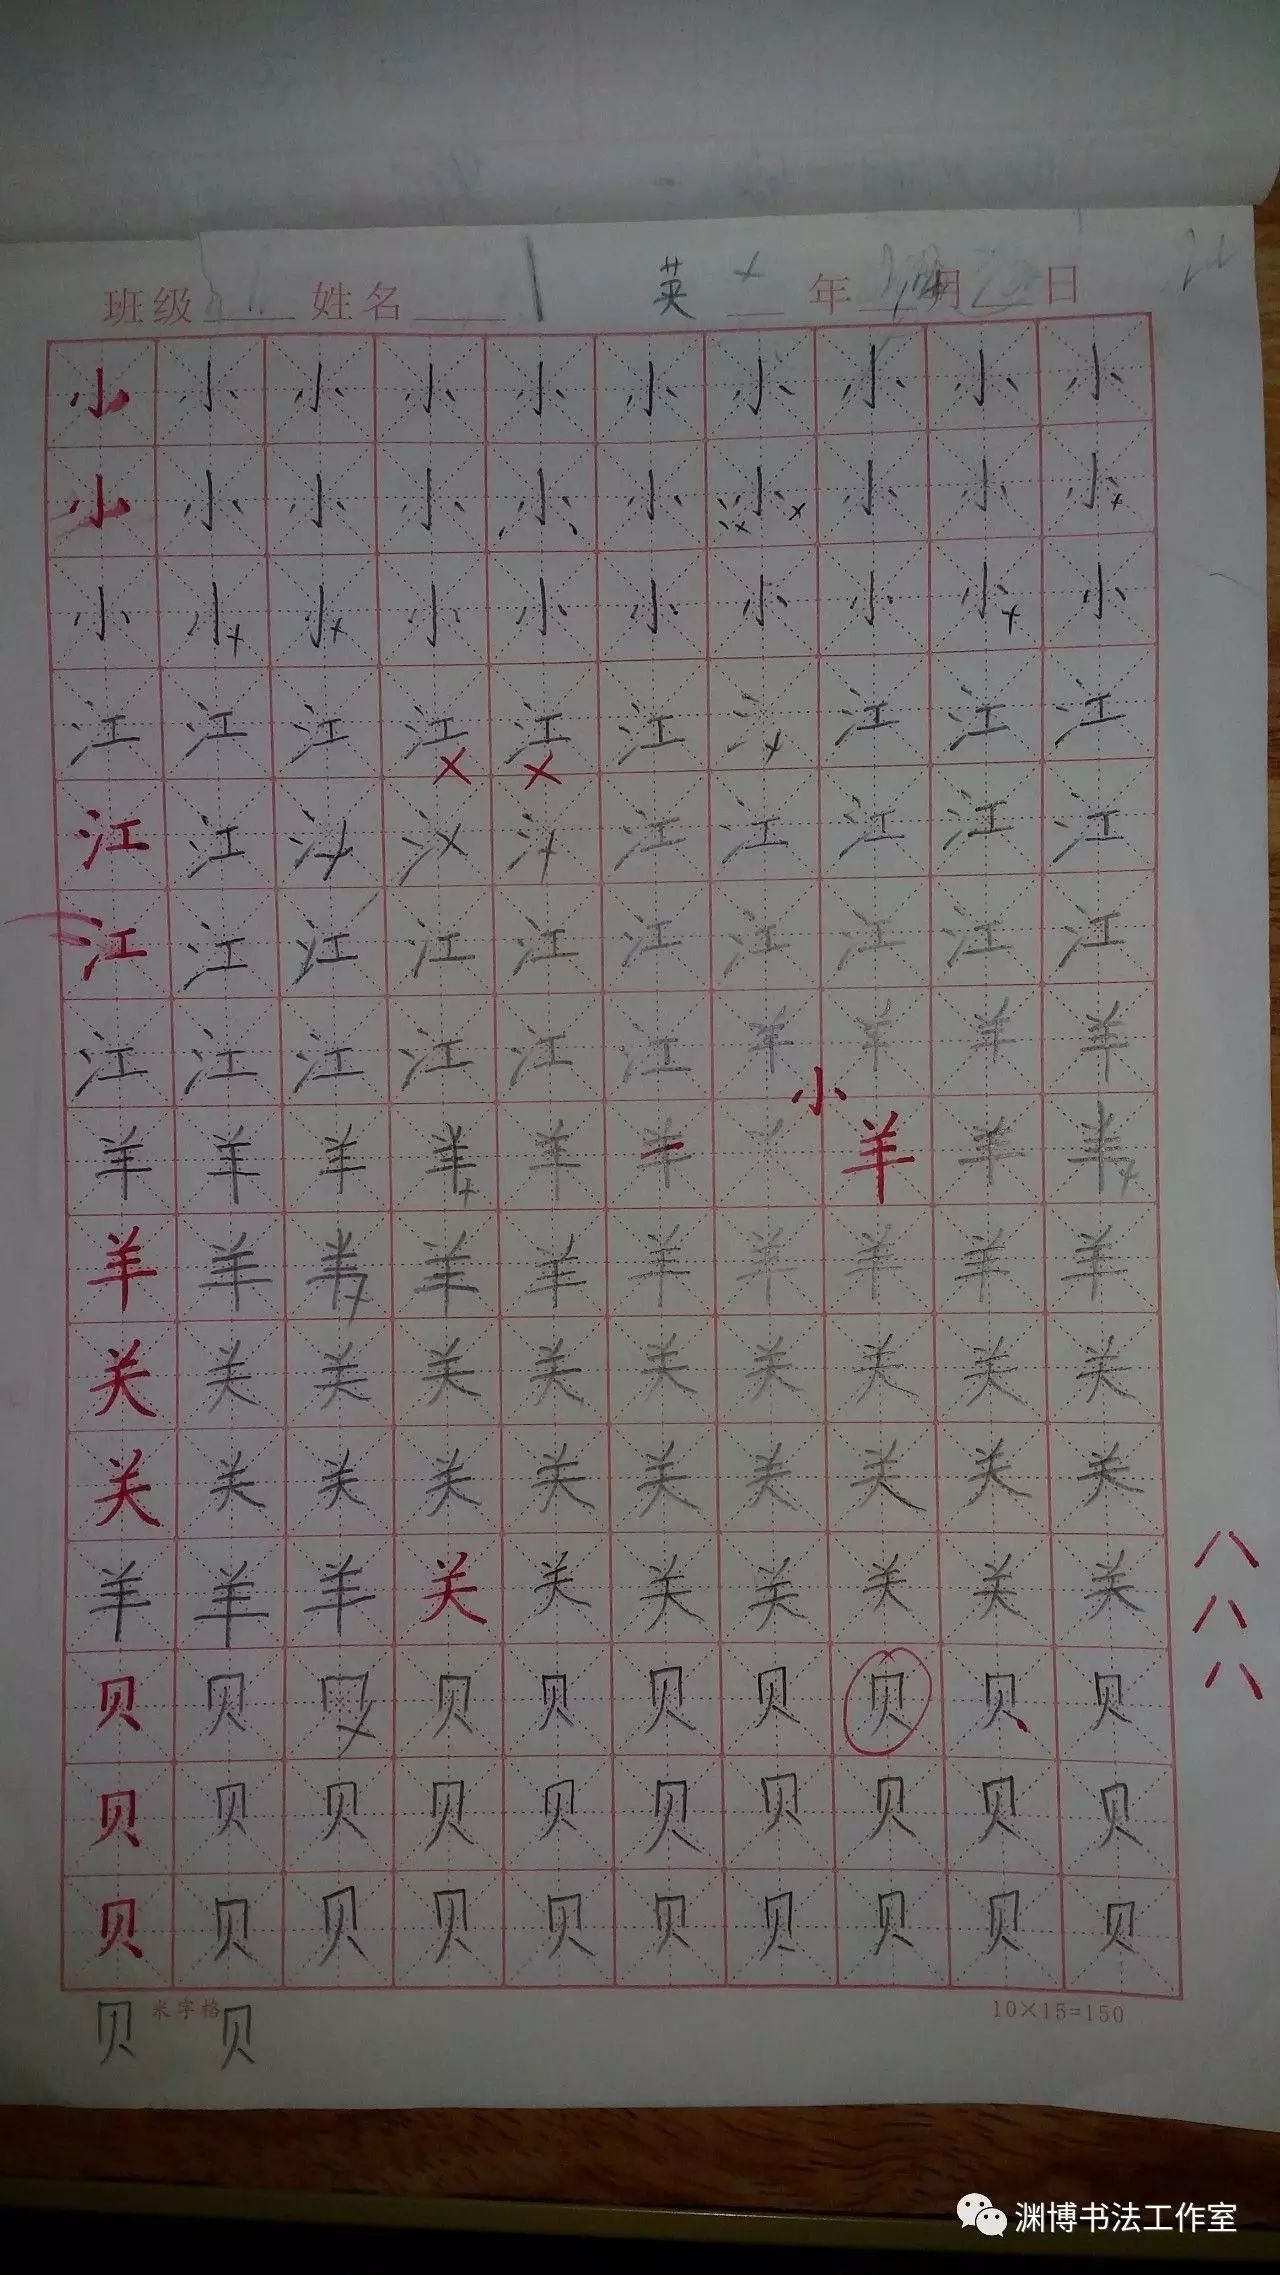 班级 姓名 英 年 月 日
小 小 小 小 小 小 小 小 小 小
小 小 小 小 小 小 小 小 小 小
小 小 小 小 小 小 小 小 小 小
江 江 江 江 江 江 江 江 江
江 江 江 江 江 江 江
江 江 江 江 江 江 江 江 江 江
江 江 江 江 江 江 羊 羊 羊 羊
小
羊 羊 羊 羊 羊 羊 羊 羊
羊 羊 羊 羊 羊 羊 羊 羊 羊
关 关 关 关 关 关 关 关 关 关
关 关 关 关 关 关 关 关 关 关
羊 羊 羊 关 关 关 关 关 关 关
八
八
八
贝 贝 贝 贝 贝 贝 贝 贝 贝
贝 贝 贝 贝 贝 贝 贝 贝 贝 贝
贝 贝 贝 贝 贝 贝 贝 贝 贝 贝
贝 米字格 贝 10×15=150
渊博书法工作室